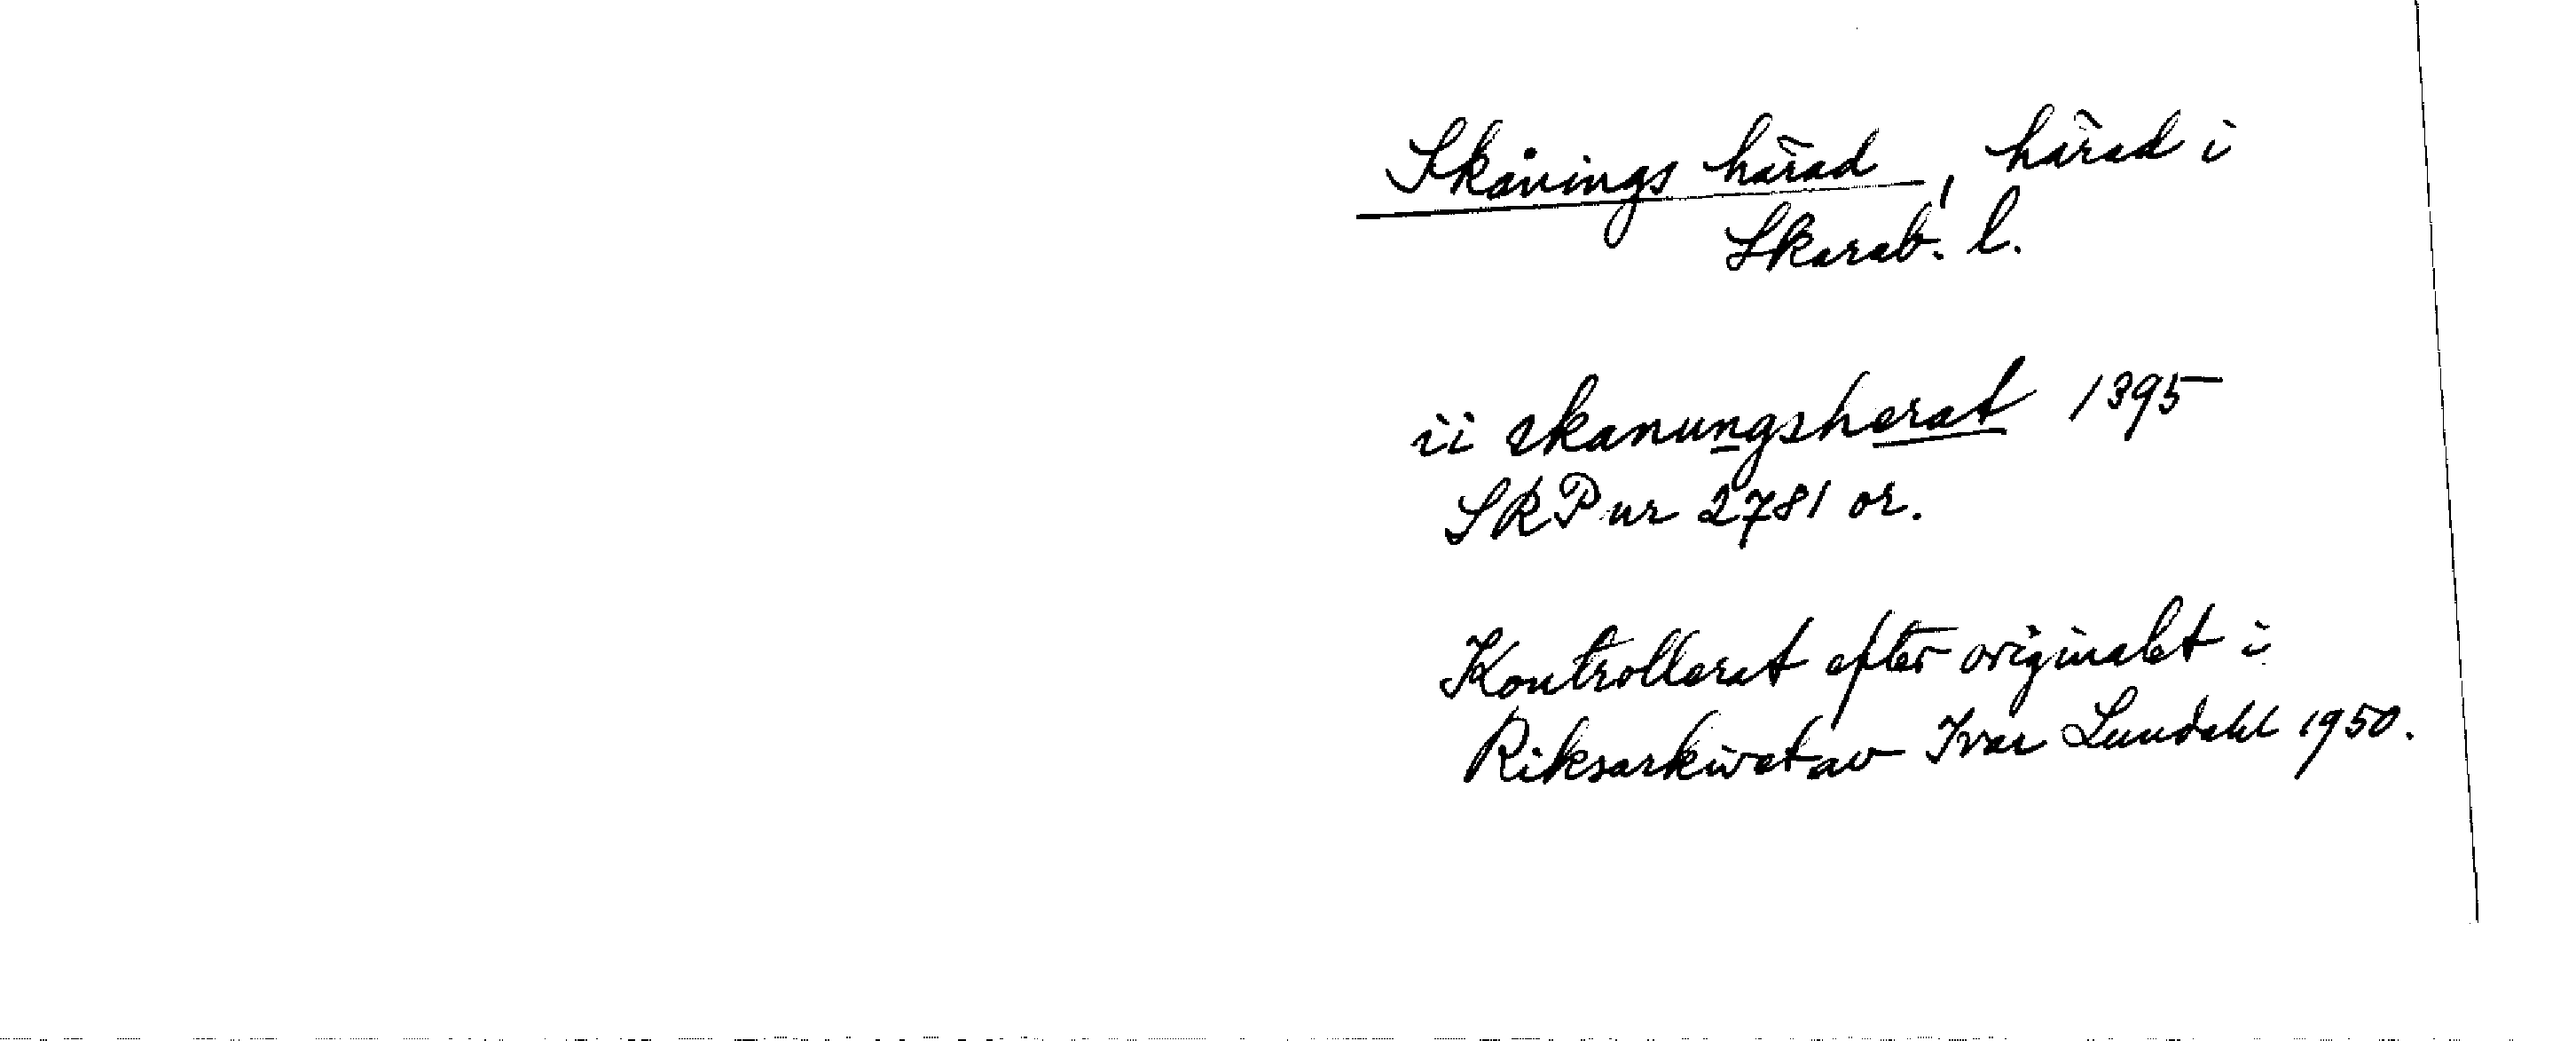 Skånings härad, härad i
Skarab. l.
ii skanungsherat 1395
SRP nr 2781 or.
Kontrollerat efter originalet i
Riksarkivet av Ivar Lundahl 1950.